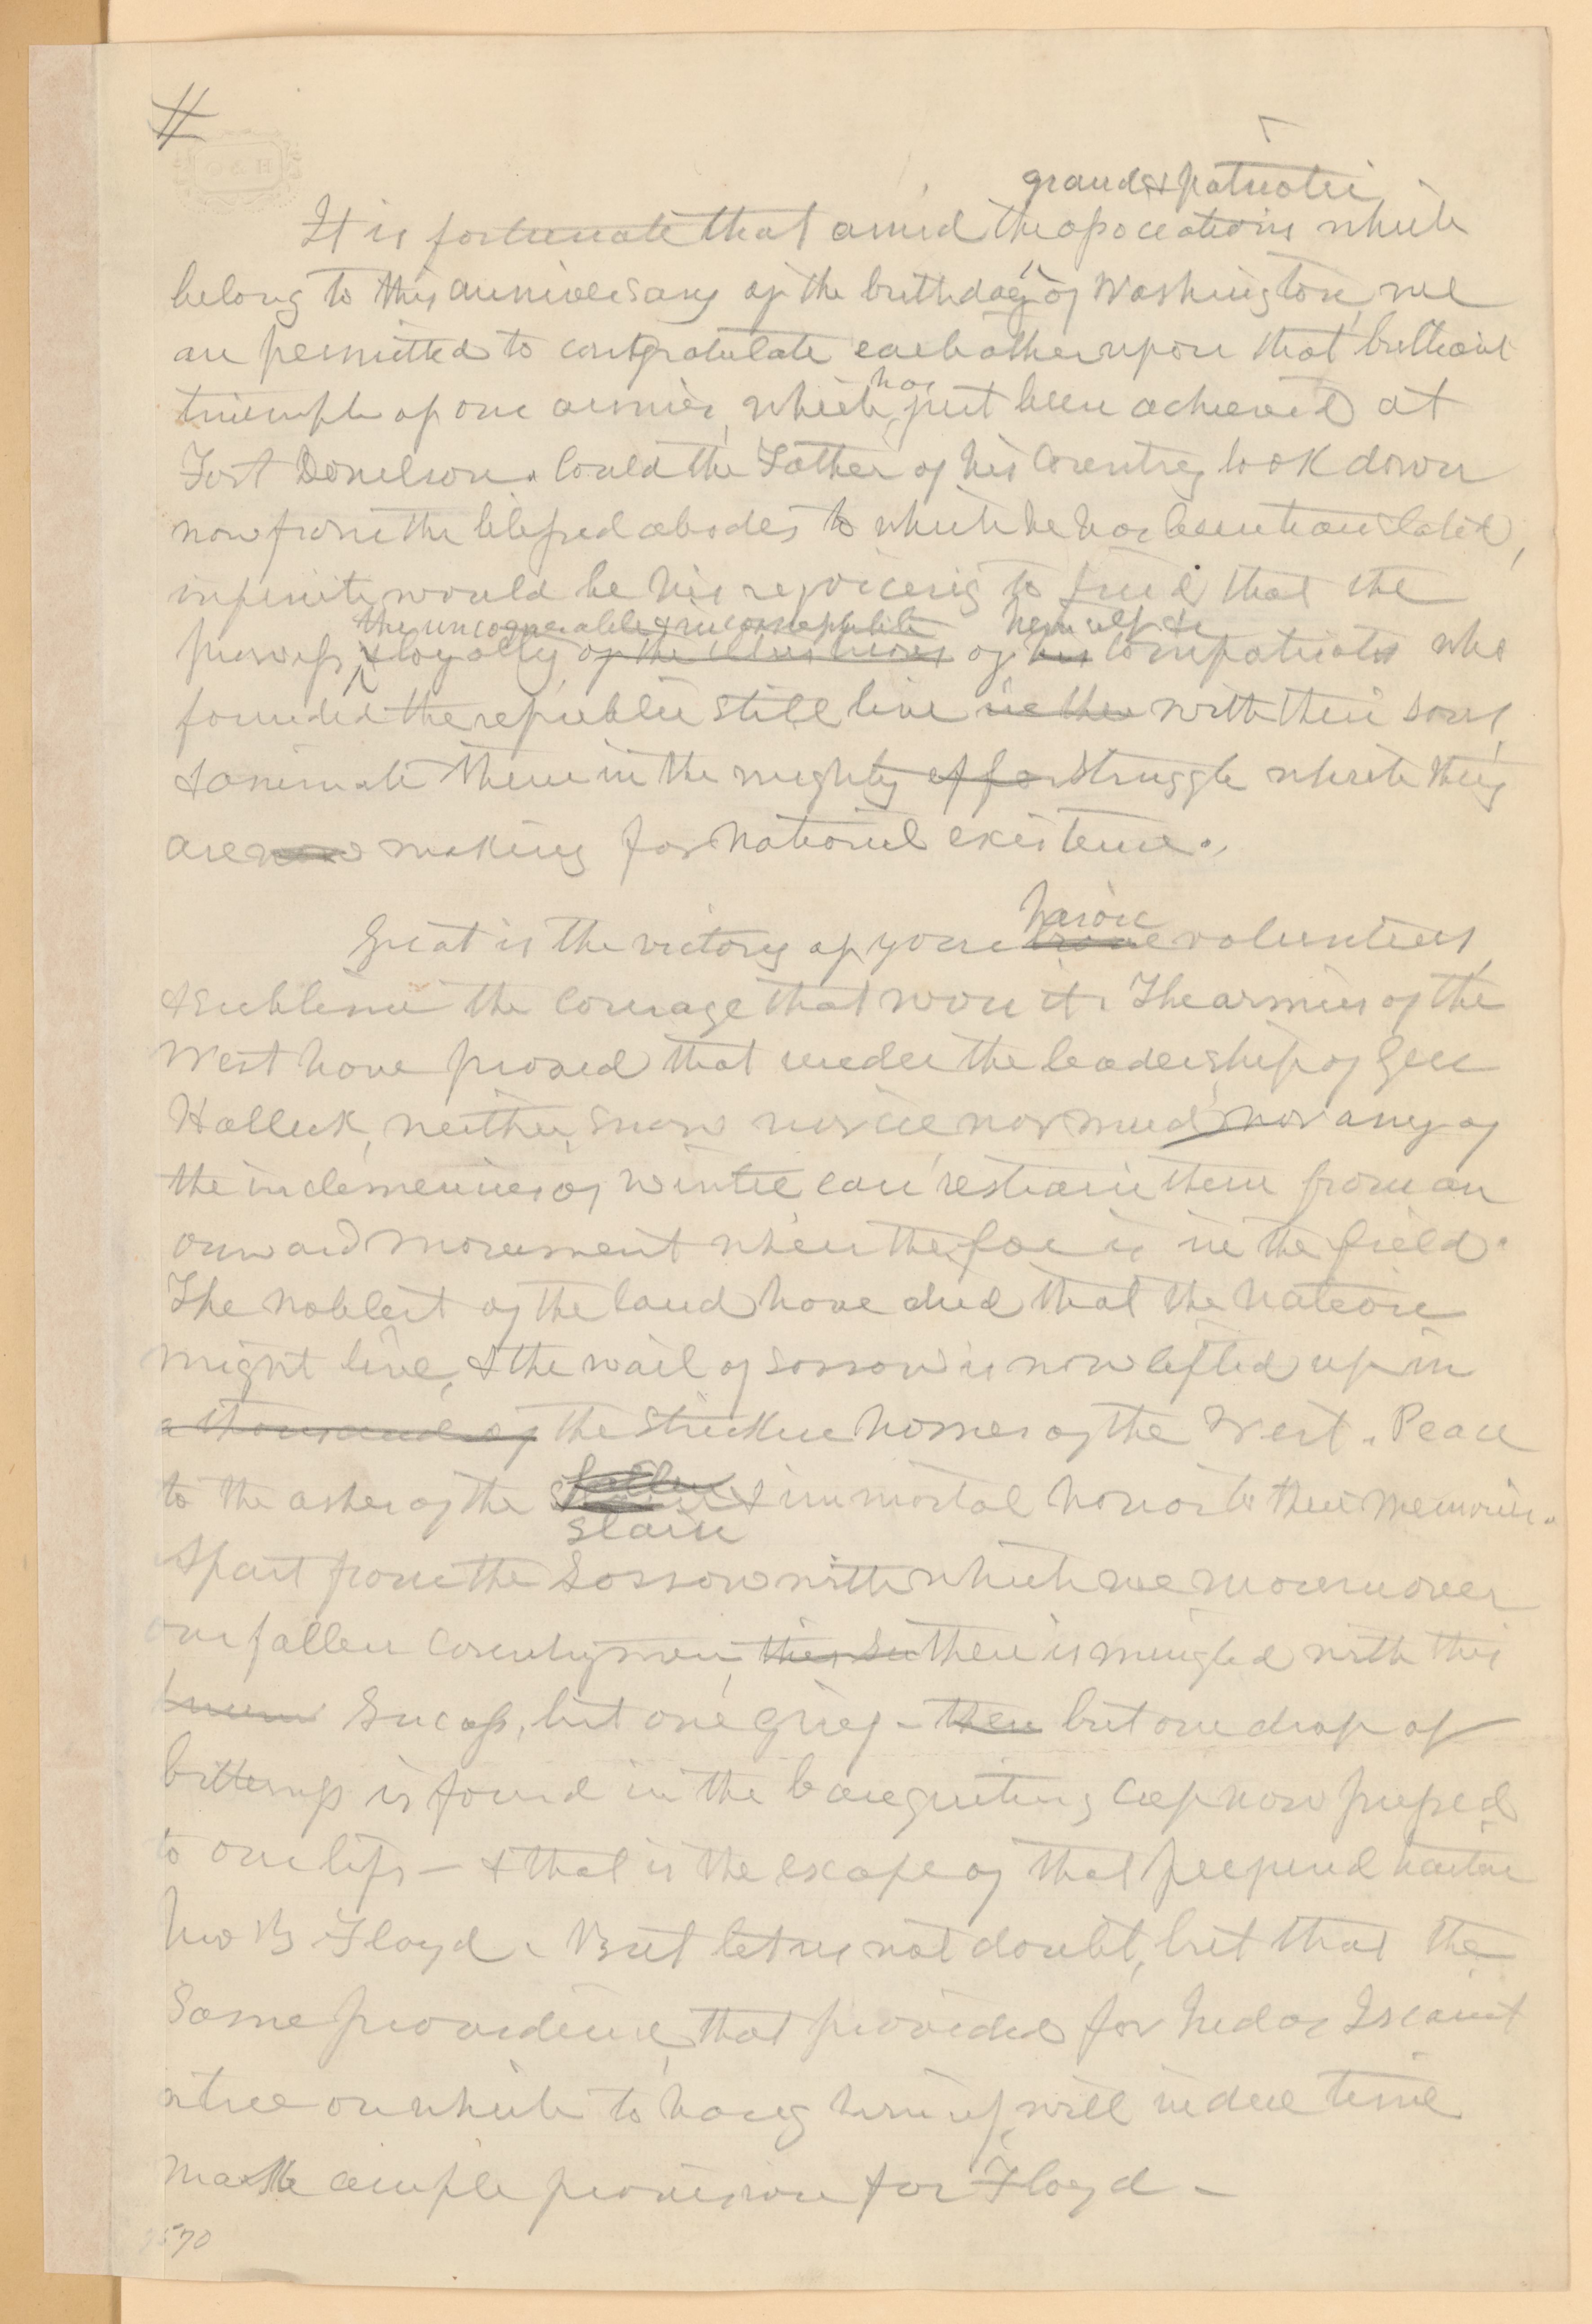 #
grand & patriotic
It is fortunate that amid the associations which
belong to this anniversary of the birthday of Washington, we
are permitted to congratulate each other upon that brilliant
triumph of our armies, which has just been achieved at
Fort Donelson. Could the Father of his Country look down
now from the blessed abodes to which he has been translated,
infinite would be his rejoicing to find that the
the unconquerable & incorruptible himself &
prowess & loyalty of the illustrious of his compatriots who
founded the republic still live in the with their sons,
& animate them in the mighty effor struggle which they
are now making for national existence.
heroic
Great is the victory of your brave volunteers,
& sublime the courage that won it. The armies of the
West have proved that under the leadership of Gen
Halleck, neither snow nor ice nor mud nor any of
the inclemencies of winter can restrain them from an
onward movement when the foe is in the field.
The noblest of the land have died that the nation
might live, & the wail of sorrow is now lifted up in
a thousand of the stricken homes of the West. Peace
to the ashes of the fallen & immortal honor to their memories.
slain
Apart from the sorrow with which we mourn over
our fallen countrymen, there is mingled with this
success, but one grief - then but one drop of
bitterness is found in the banqueting cup now pressed
to our lips - & that is the escape of that perjured traitor
Jno B Floyd. But let us not doubt, but that the
same providence, that provided for Judas Iscariot
a tree on which to hang himself, will in due time
make ample provision for Floyd -
570